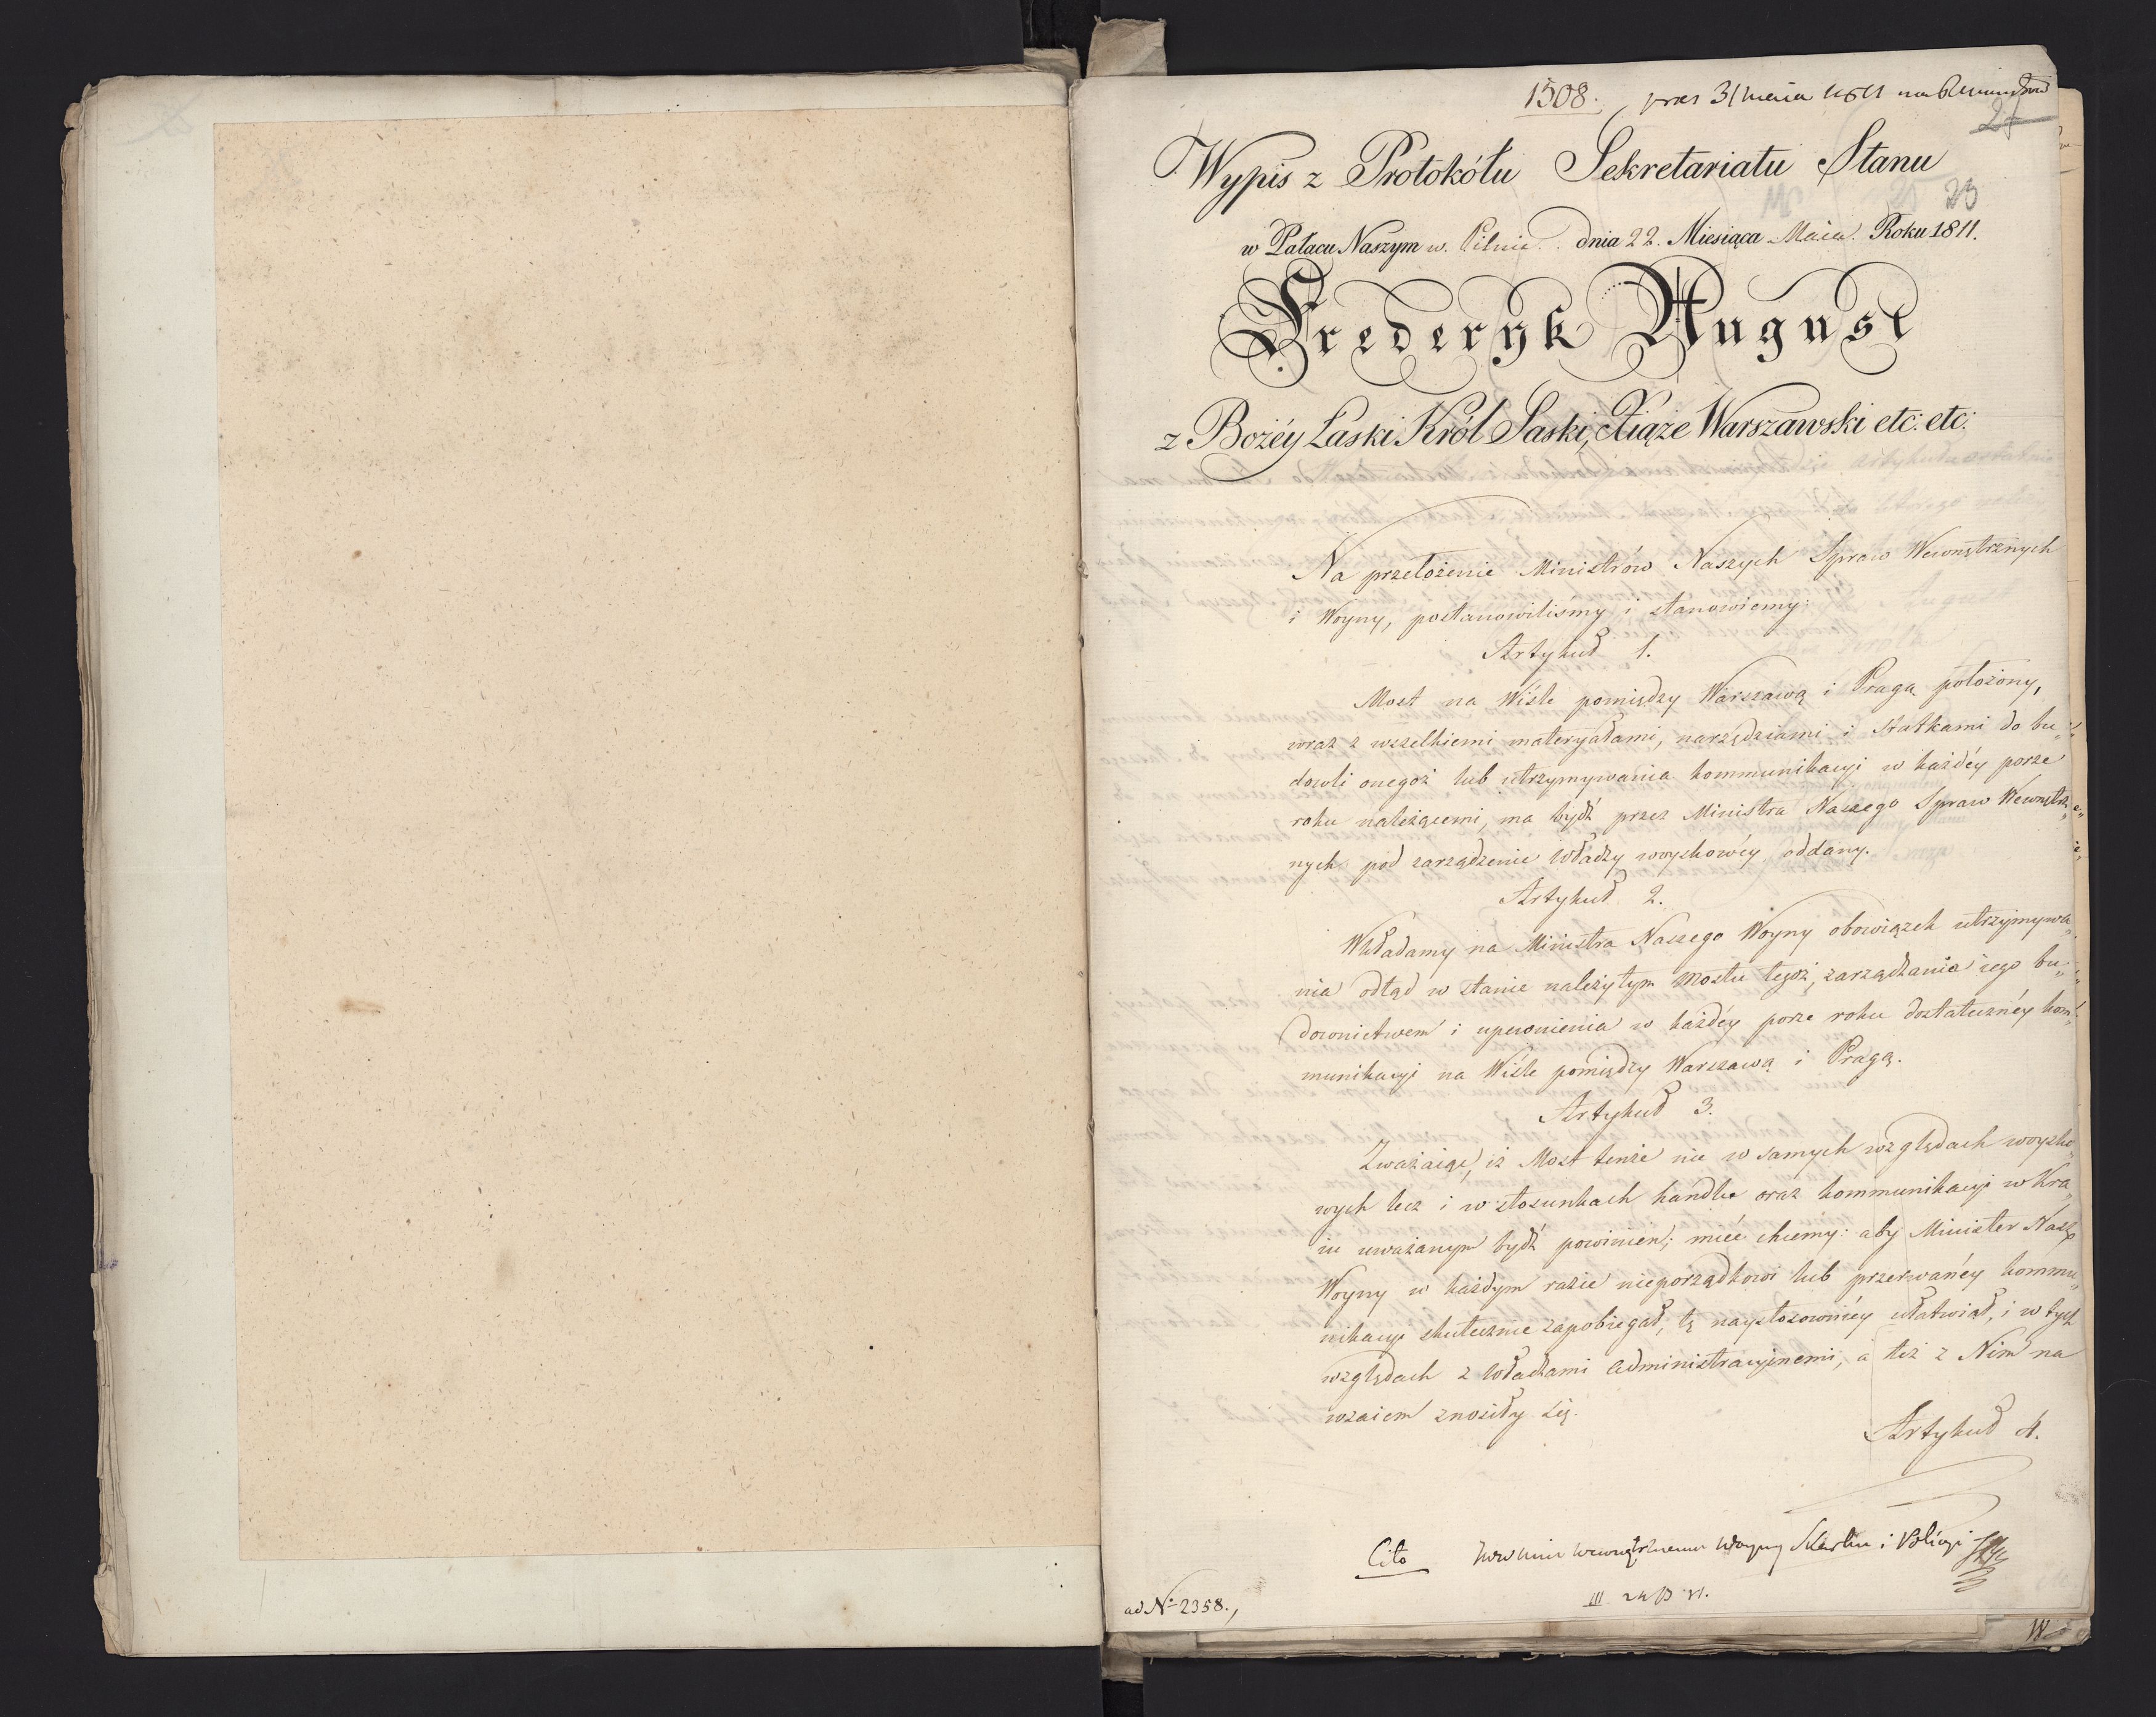 1508. pres 31 maia 1811 na R Ministrów
27
Wypis z Protokółu Sekretariatu Stanu
23
w Pałacu Naszym w. Pilnic. dnia 22. Miesiąca Maia. Roku 1811.
Frederyk August
z Bożéy Łaski Król Saski, Xiąże Warszawski etc: etc:
Na przełożenie Ministrów Naszych Spraw Wewnętrznych
i Woyny, postanowiliśmy i stanowiemy:
Artykuł 1.
Most na Wiśle pomiędzy Warszawą i Pragą położony,
wraz z wszelkiemi materyałami, narzędziami i statkami do bu„
dowli onegoż lub utrzymywania kommunikacyi w każdéy porze
roku należącemi, ma bydź przez Ministra Naszego Spraw Wewnętrz„
nych pod zarządzenie Władzy woyskowéy oddany.
Artykuł 2.
Wkładamy na Ministra Naszego Woyny obowiązek utrzymywa„
nia odtąd w stanie należytym Mostu tegoż, zarządzania iego bu„
downictwem i upewnienia w każdéy porze roku dostatecznéy kom„
munikacyi na Wiśle pomiędzy Warszawą i Pragą.
Artykuł 3.
Zważaiąc, iż Most tenże nie w samych względach woysko„
wych lecz i w stosunkach handlu oraz kommunikacyi w Kra„
iu uważanym bydź powinien; mieć chcemy: aby Minister Nasz
Woyny w każdym razie nieporządkowi lub przerwanéy kommu„
nikacyi skutecznie zapobiegał, tę naystosownieéy ułatwiał, i w tych
względach z Władzami Administracyinemi, a też z Nim na
wzaiem znosiły się.
Artykuł 4.
Cito Wewnętrznemu Woyny Skarbu i Policyi
ad No 2358.,